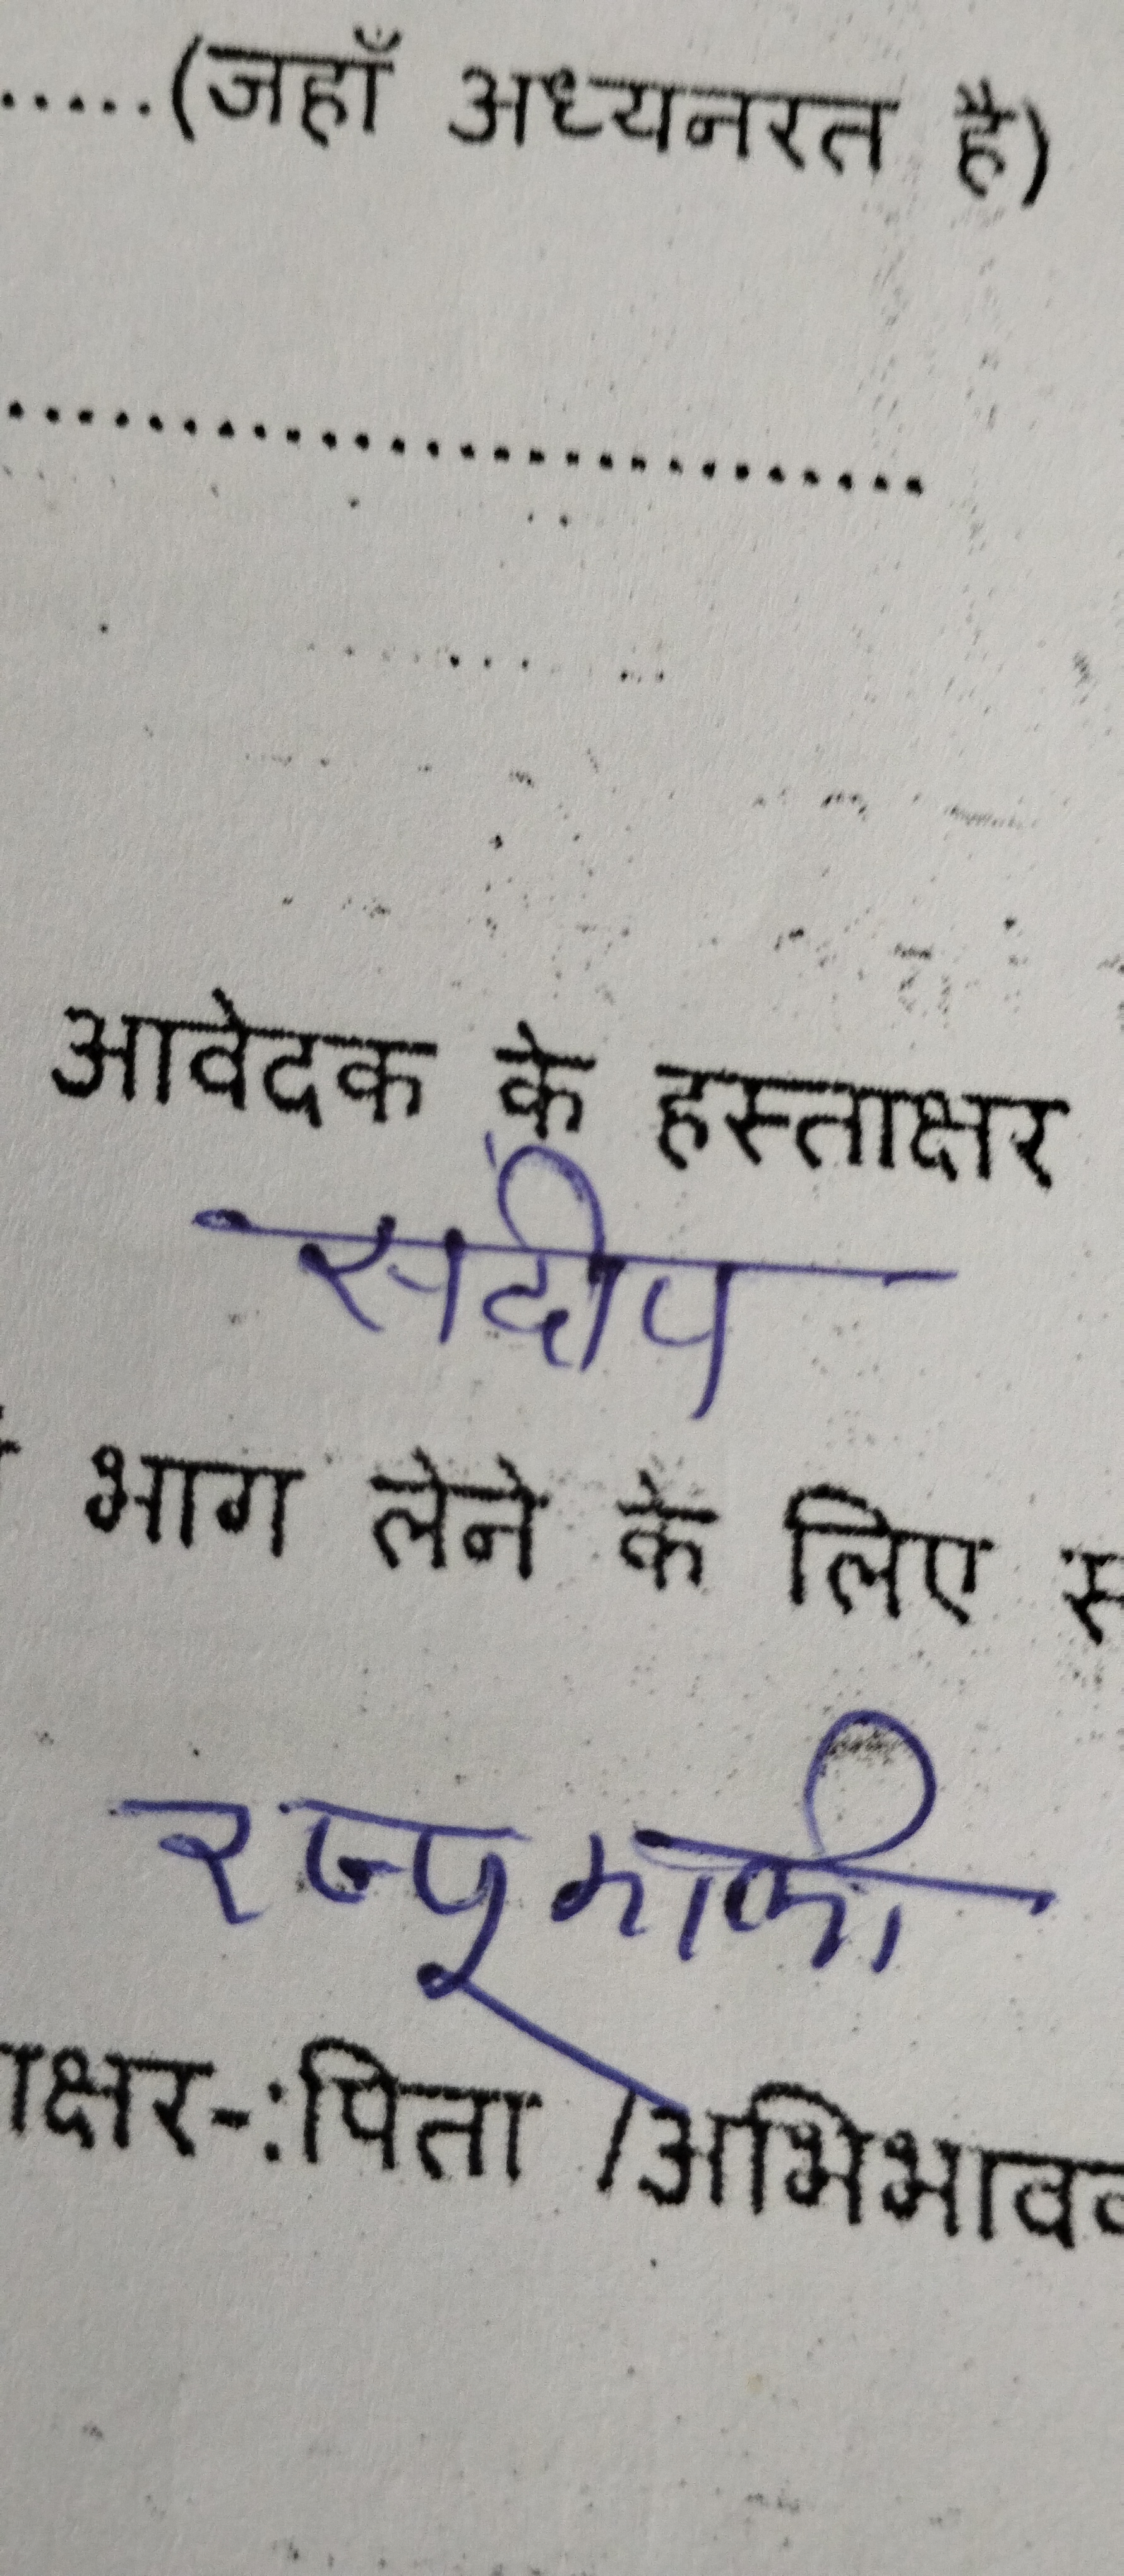 .....(जहाँ अध्यनरत है)
..........................
आवेदक के हस्ताक्षर
संदीप
भाग लेने के लिए
क्षर-:पिता /अभिभाव